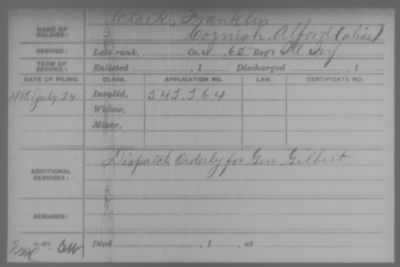 NAME OF SOLDIER: Clark, Franklin
Cornish, Alford (alias)
SERVICE: Late rank, Co. I, 65 Reg't Ill Inf
TERM OF SERVICE: Enlisted , 1 Discharged , 1
DATE OF FILING. CLASS. APPLICATION NO. LAW. CERTIFICATE NO.
1885 July 24 Invalid, 545.364
Widow,
Minor,
ADDITIONAL SERVICES: Dispatch Orderly for Gen. Gilbert.
REMARKS:
Died , 1 , at